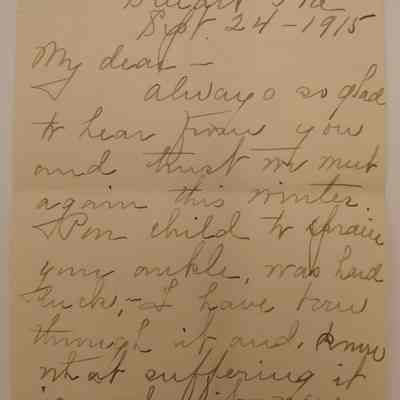 Sept. 24 - 1915
My dear -
Always so glad
to hear from you
and trust we meet
again this winter.
Poor child to sprain
your ankle, was hard
luck, - I have been
through it and know
what suffering it